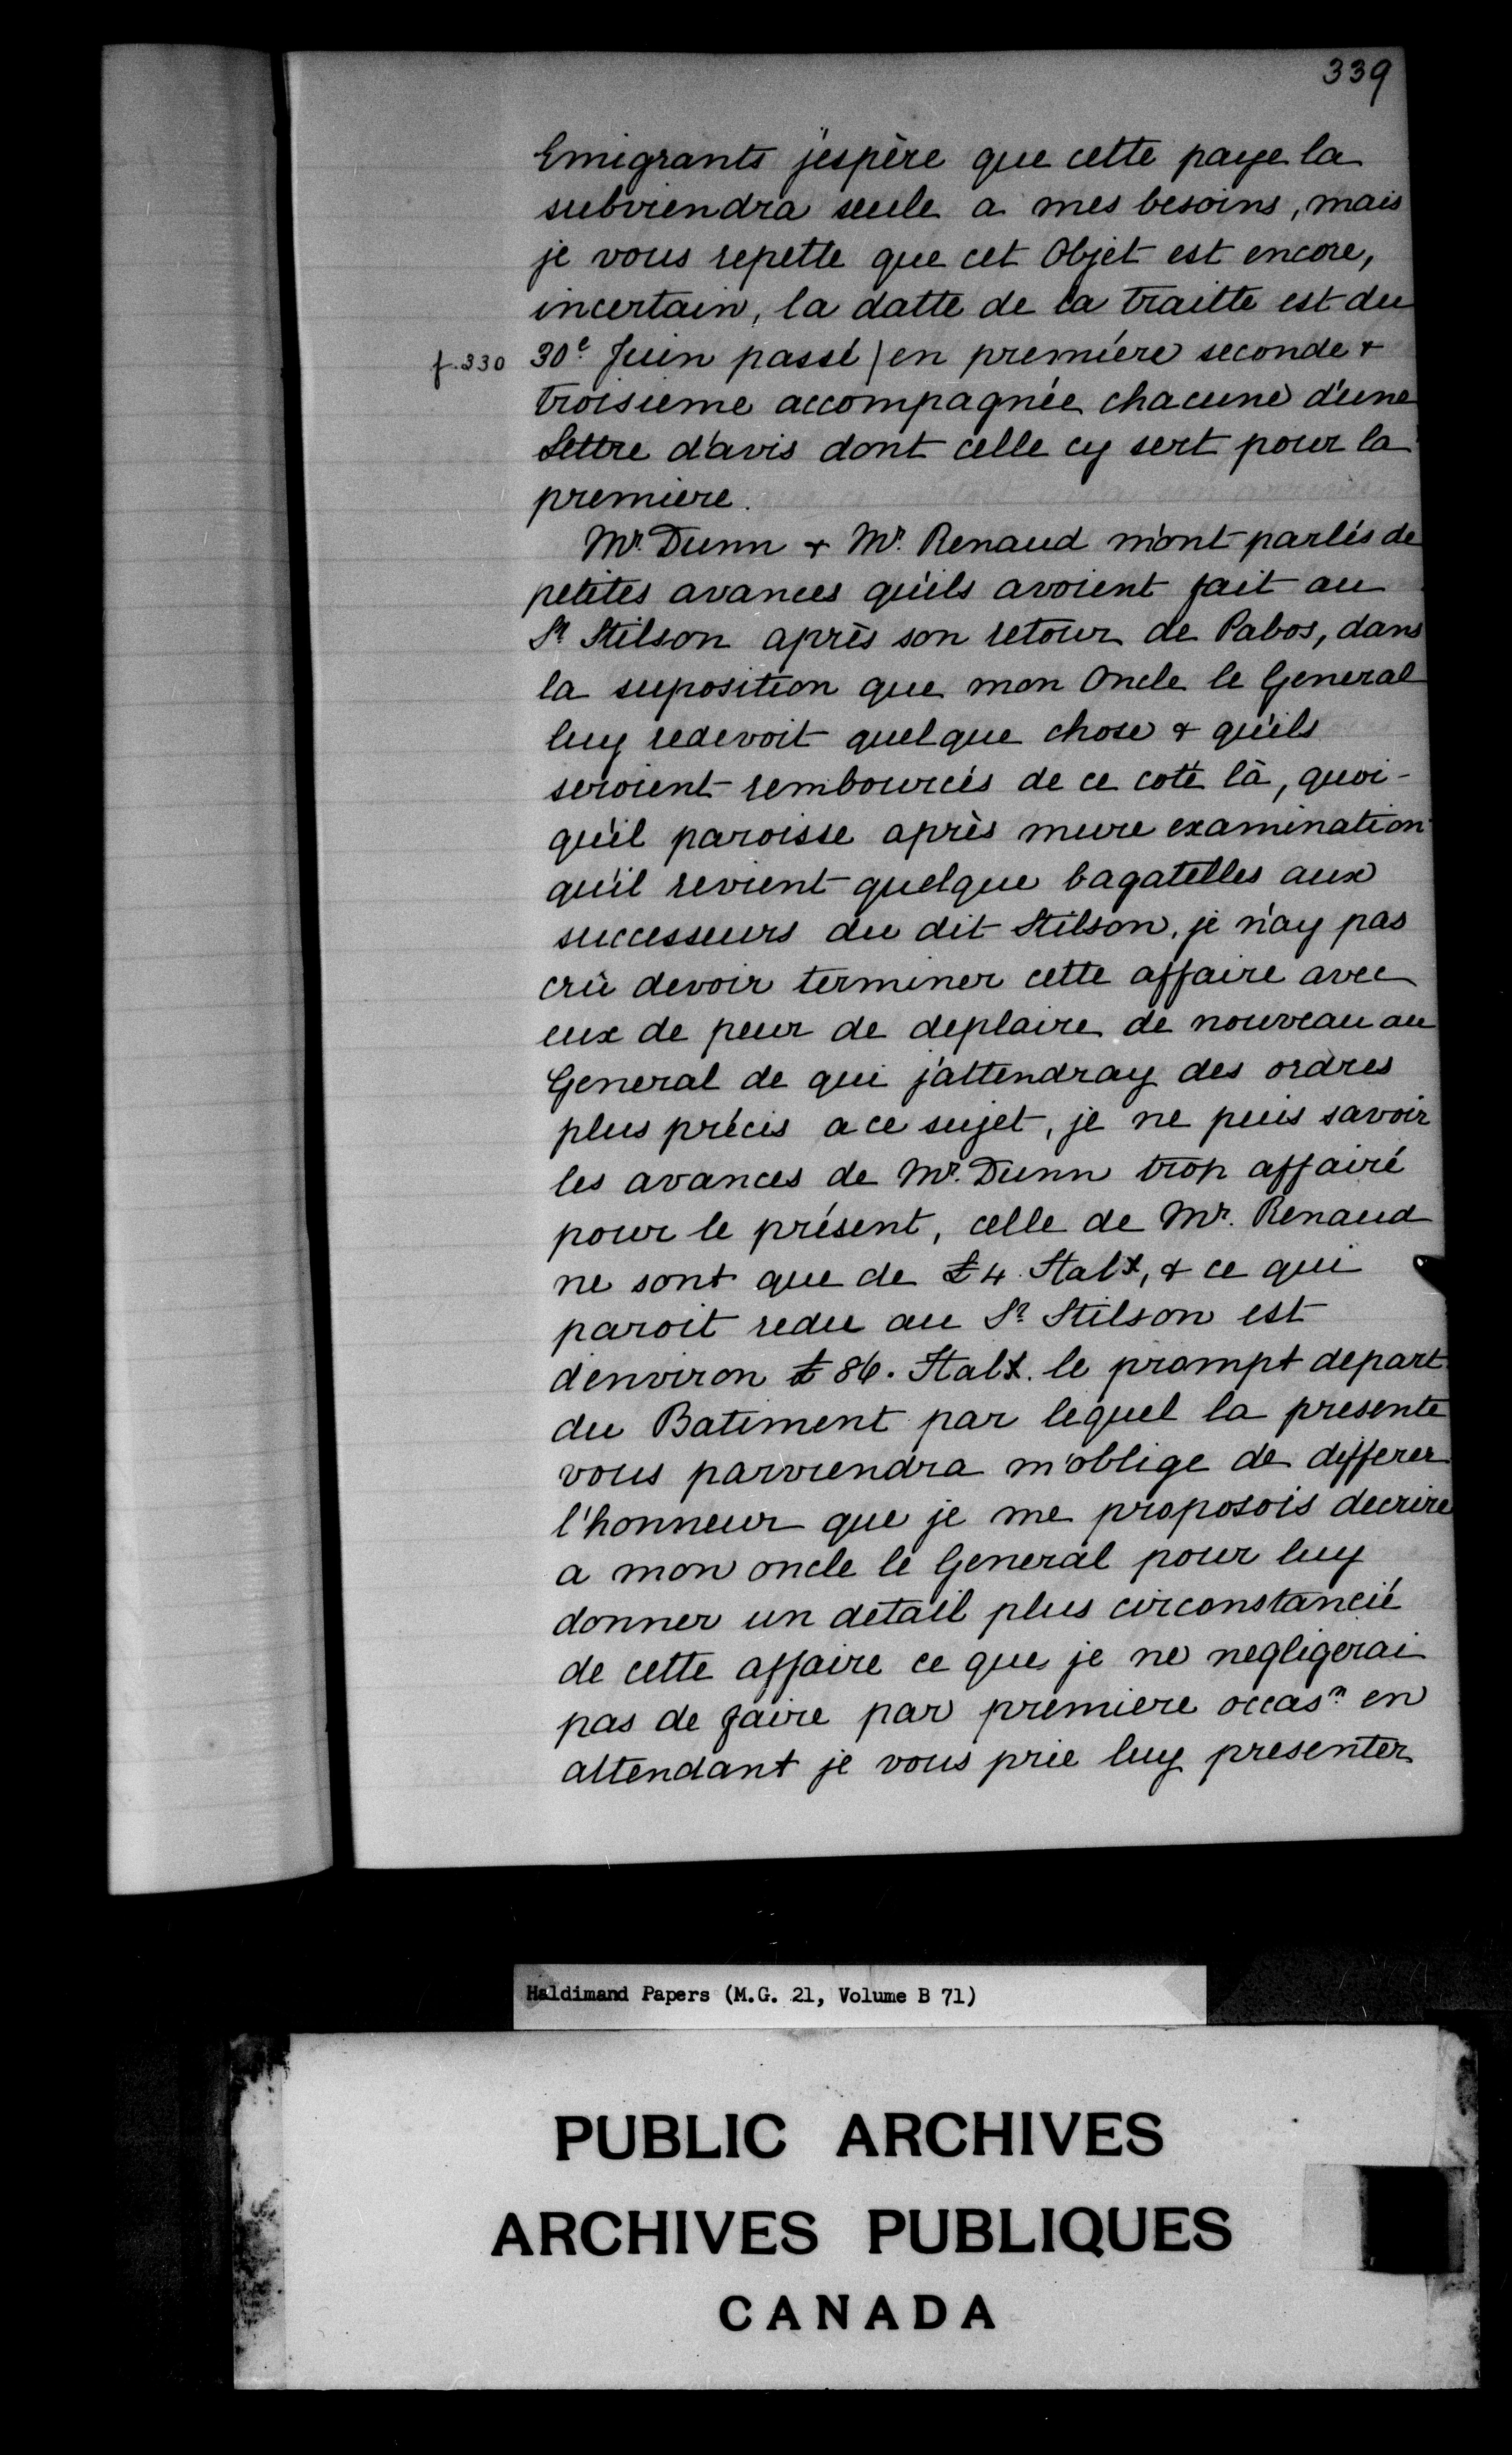 339
Emigrants j'espère que cette paye la
subviendra seule a mes besoins, mais
je vous repette que cet Objet est encore,
incertain, la datte de la traitte est du
f.330 30e Juin passé | en première seconde &
troisieme accompagnée chacune d'une
Lettre d'avis dont celle cy sert pour la
premiere.
Mr. Dunn & Mr. Renaud m'ont parlés de
petites avances qu'ils avoient fait au
Sr Stilson après son retour de Pabos, dans
la suposition que mon Oncle le General
luy redevoit quelque chose & qu'ils
seroient rembourcés de ce coté là, quoi-
qu'il paroisse après meure examination
qu'il revient quelque bagatelles aux
successeurs du dit Stilson, je n'ay pas
crû devoir terminer cette affaire avec
eux de peur de deplaire de nouveau au
General de qui j'attendray des ordres
plus précis a ce sujet, je ne puis savoir
les avances de Mr. Dunn trop affairé
pour le présent, celle de Mr. Renaud
ne sont que de £4. Halx, & ce qui
paroit redu au Sr Stilson est
d'environ £86. Halx. le prompt depart
du Batiment par lequel la presente
vous parviendra m'oblige de differer
l'honneur que je me proposois decrire
a mon oncle le General pour luy
donner un détail plus circonstancié
de cette affaire ce que je ne negligerai
pas de faire par premiere occasn en
attendant je vous prie luy presenter
Haldimand Papers (M.G. 21, Volume B 71)
PUBLIC ARCHIVES
ARCHIVES PUBLIQUES
CANADA